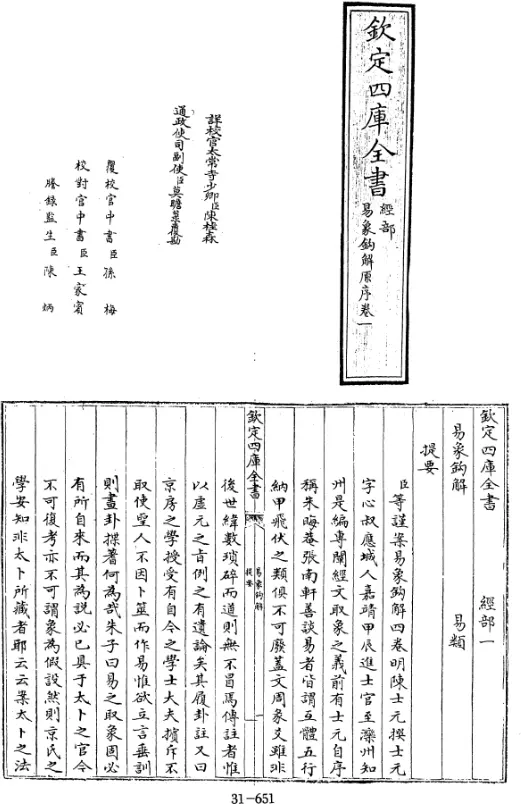 欽定四庫全書
經部
易象鈎解原序卷一
詳校官太常寺少卿臣陳桂森
通政使司副使臣莫瞻菉覆勘
覆校官中書臣孫梅
校對官中書臣王家賓
謄錄監生臣陳炳
欽定四庫全書 經部一
易象鈎解 易類
提要
臣等謹案易象鈎解四卷明陳士元撰士元
字心叔應城人嘉靖甲辰進士官至灤州知
州是編專闡經文取象之義前有士元自序
稱朱晦菴張南軒善談易者皆謂互體五行
納甲飛伏之類俱不可廢蓋文周象爻雖非
欽定四庫全書
易象鈎解
提要
一
後世緯數瑣碎而道則無不冒焉傳註者惟
以虚元之㫖例之有遺論矣其履卦註又曰
京房之學授受有自今之學士大夫擯斥不
取使聖人不因卜筮而作易惟欲立言垂訓
則畫卦揲蓍何為哉朱子曰易之取象固必
有所自來而其為說必已具于太卜之官今
不可復考亦不可謂象為假設然則京氏之
學安知非太卜所藏者耶云云案太卜之法
31-651